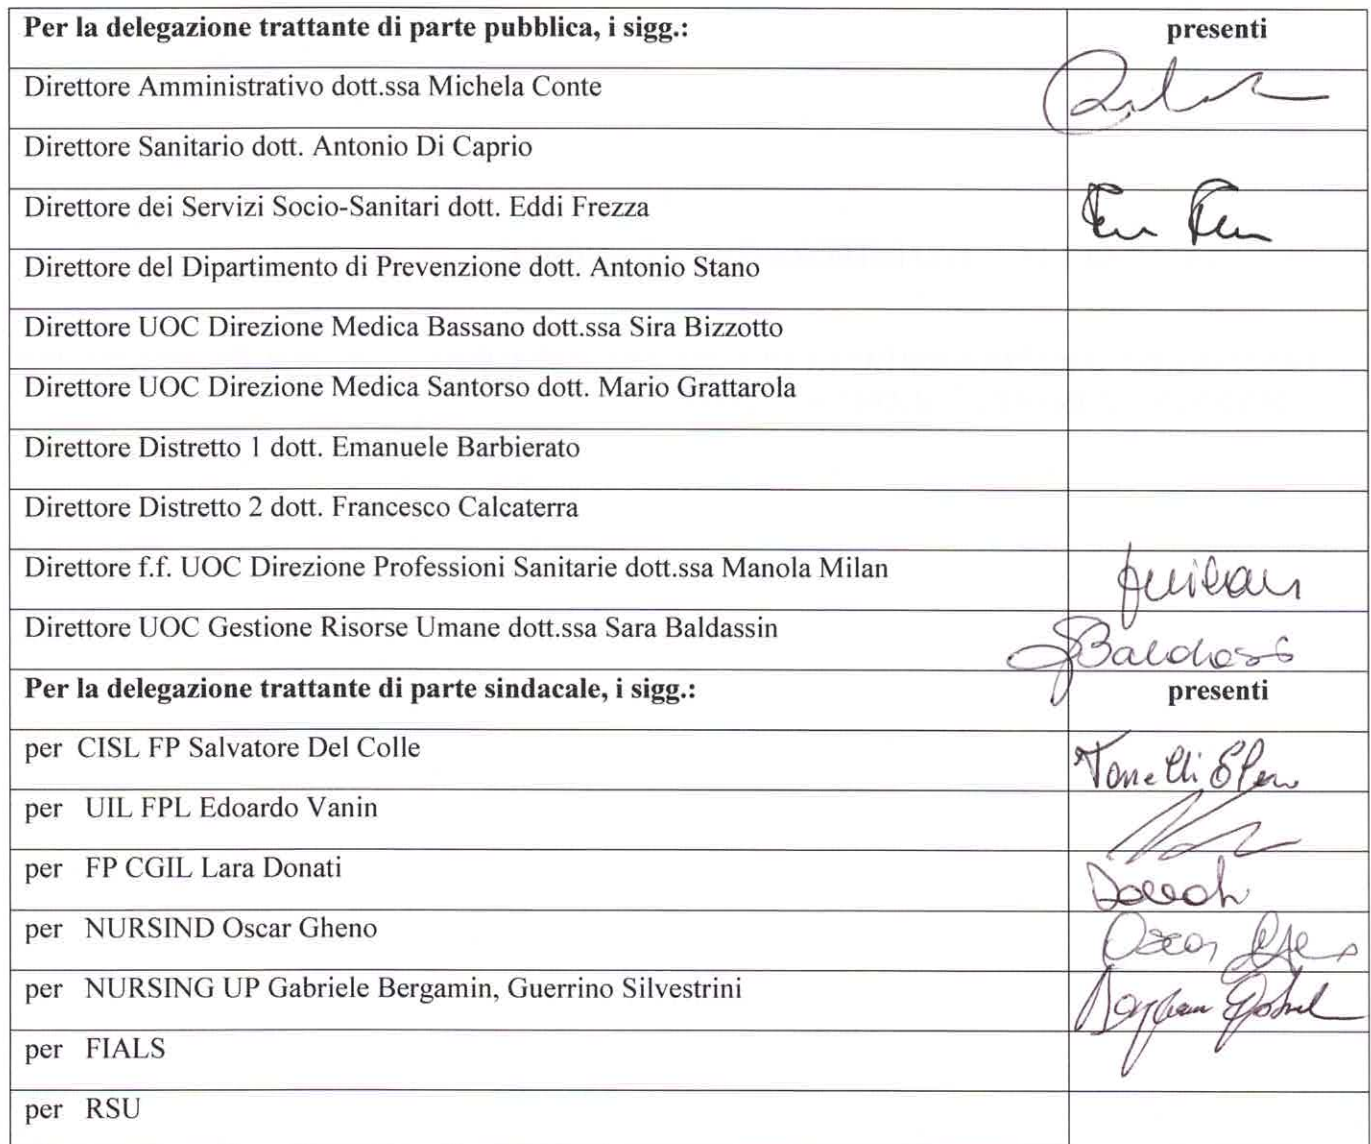 Per la delegazione trattante di parte pubblica, i sigg.: presenti
Direttore Amministrativo dott.ssa Michela Conte
Direttore Sanitario dott. Antonio Di Caprio
Direttore dei Servizi Socio-Sanitari dott. Eddi Frezza
Direttore del Dipartimento di Prevenzione dott. Antonio Stano
Direttore UOC Direzione Medica Bassano dott.ssa Sira Bizzotto
Direttore UOC Direzione Medica Santorso dott. Mario Grattarola
Direttore Distretto 1 dott. Emanuele Barbierato
Direttore Distretto 2 dott. Francesco Calcaterra
Direttore f.f. UOC Direzione Professioni Sanitarie dott.ssa Manola Milan
Direttore UOC Gestione Risorse Umane dott.ssa Sara Baldassin
Per la delegazione trattante di parte sindacale, i sigg.: presenti
per CISL FP Salvatore Del Colle
per UIL FPL Edoardo Vanin
per FP CGIL Lara Donati
per NURSIND Oscar Gheno Oscar
per NURSING UP Gabriele Bergamin, Guerrino Silvestrini
per FIALS
per RSU